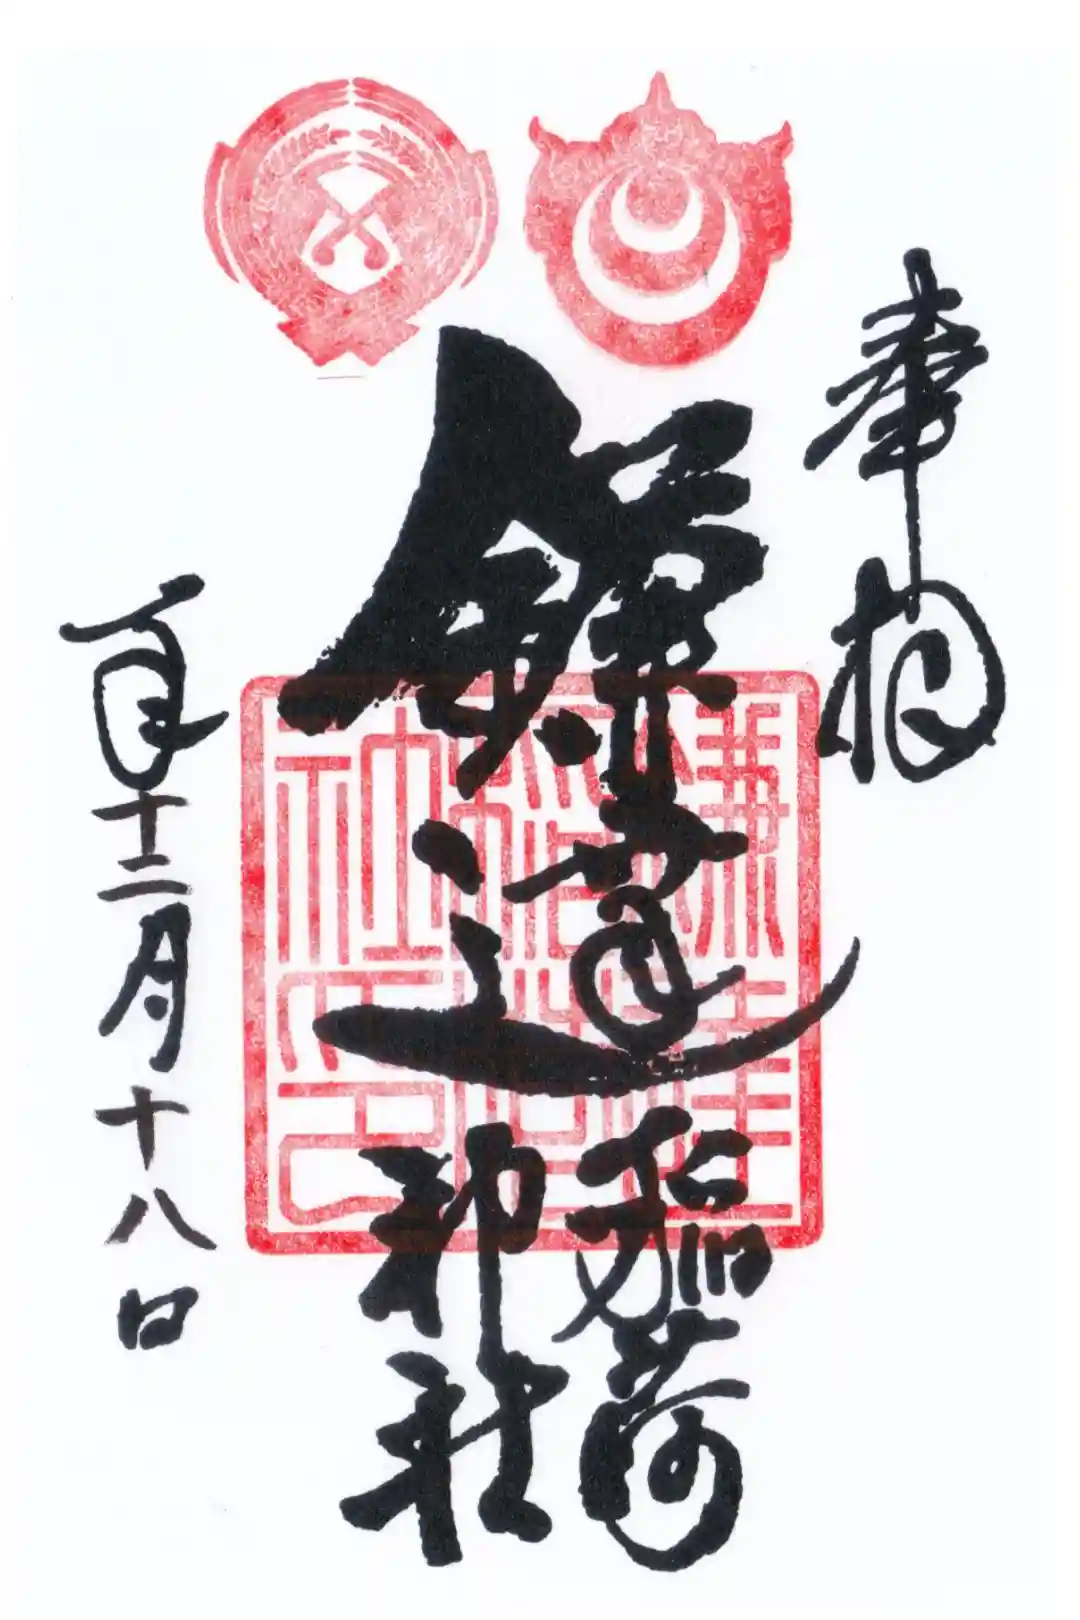 奉拝
鎌達
稲荷
神社
十二月十八日